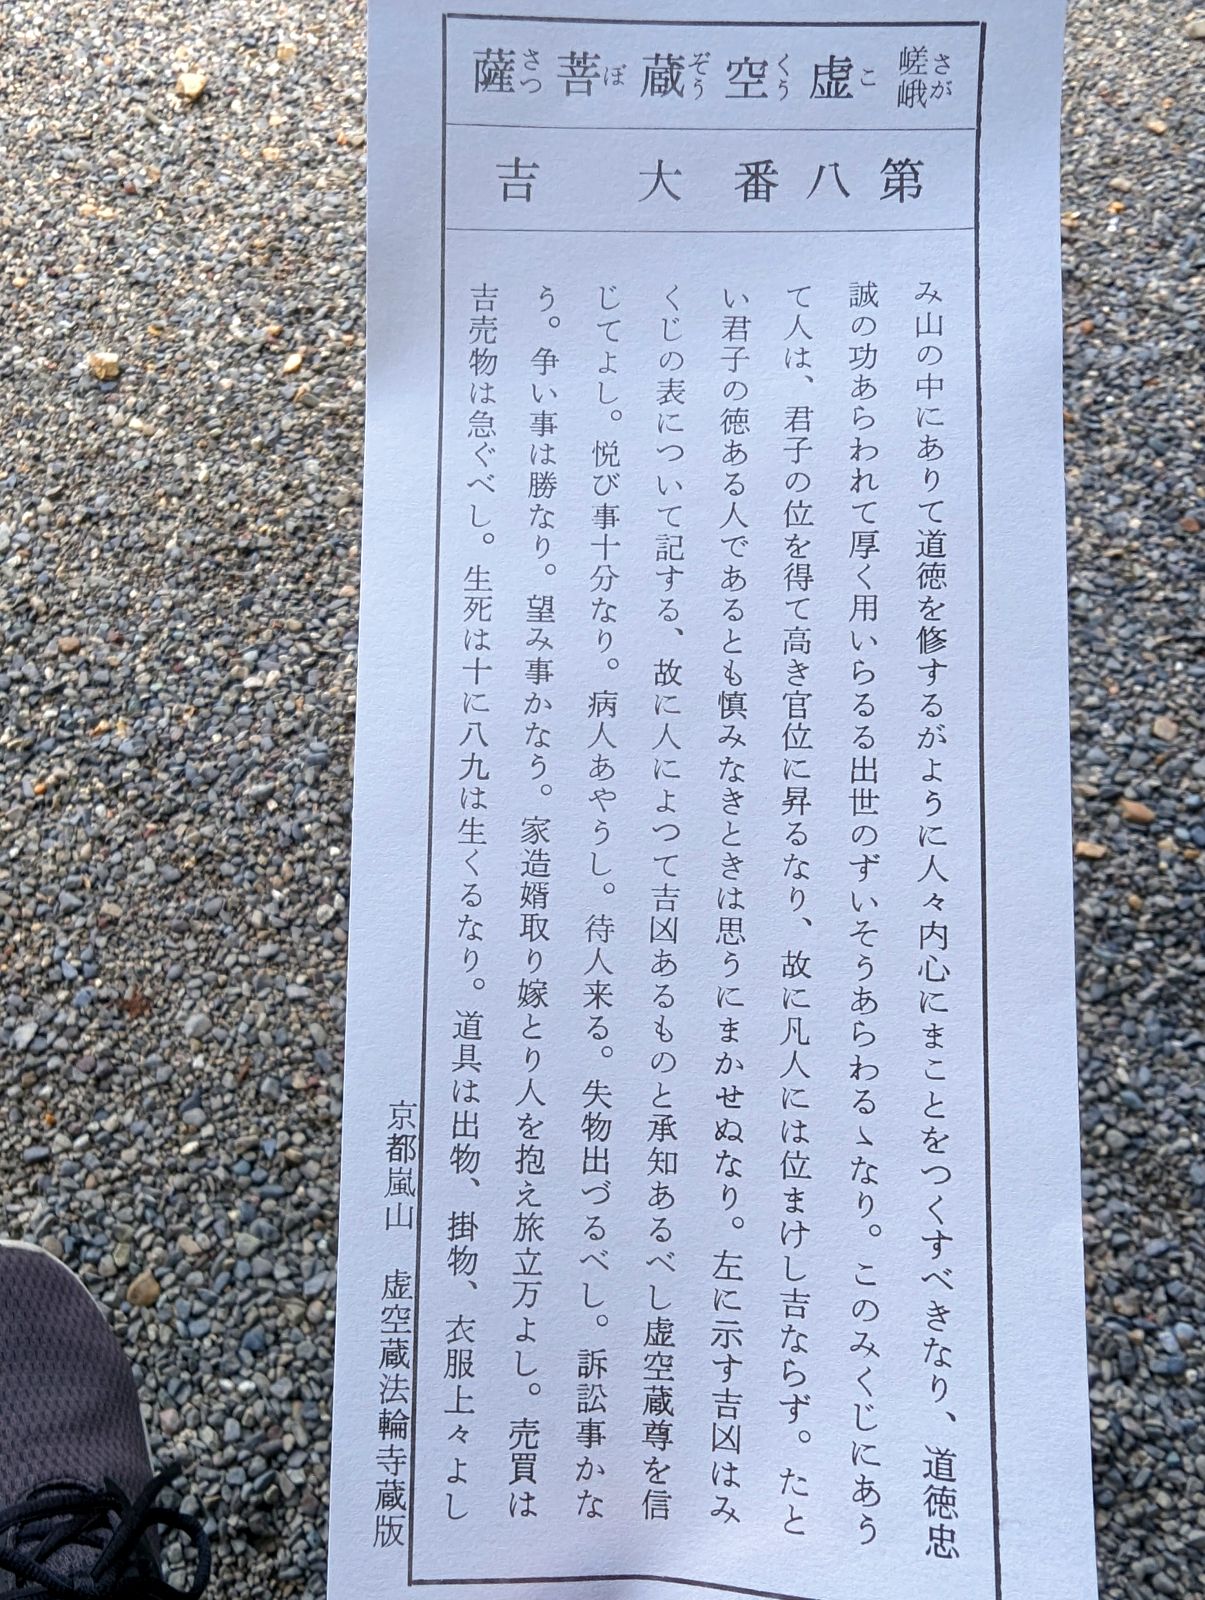 嵯峨 虚空蔵菩薩
さが こくうぞうぼさつ
第八番 大吉
み山の中にありて道徳を修するがように人々内心にまことをつくすべきなり、道徳忠
誠の功あらわれて厚く用いらるる出世のずいそうあらわるゝなり。このみくじにあう
て人は、君子の位を得て高き官位に昇るなり、故に凡人には位まけし吉ならず。たと
い君子の徳ある人であるとも慎みなきときは思うにまかせぬなり。左に示す吉凶はみ
くじの表について記する、故に人によつて吉凶あるものと承知あるべし虚空蔵尊を信
じてよし。悦び事十分なり。病人あやうし。待人来る。失物出づるべし。訴訟事かな
う。争い事は勝なり。望み事かなう。家造婿取り嫁とり人を抱え旅立万よし。売買は
吉売物は急ぐべし。生死は十に八九は生くるなり。道具は出物、掛物、衣服上々よし
京都嵐山 虚空蔵法輪寺蔵版